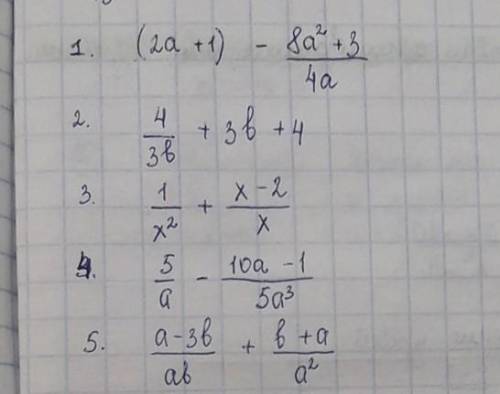 1. (2a + 1) - (8a² + 3)/(4a)
2. 4/(3b) + 3b + 4
3. 1/x² + (x - 2)/x
4. 5/a - (10a - 1)/(5a³)
5. (a - 3b)/(ab) + (b + a)/a²